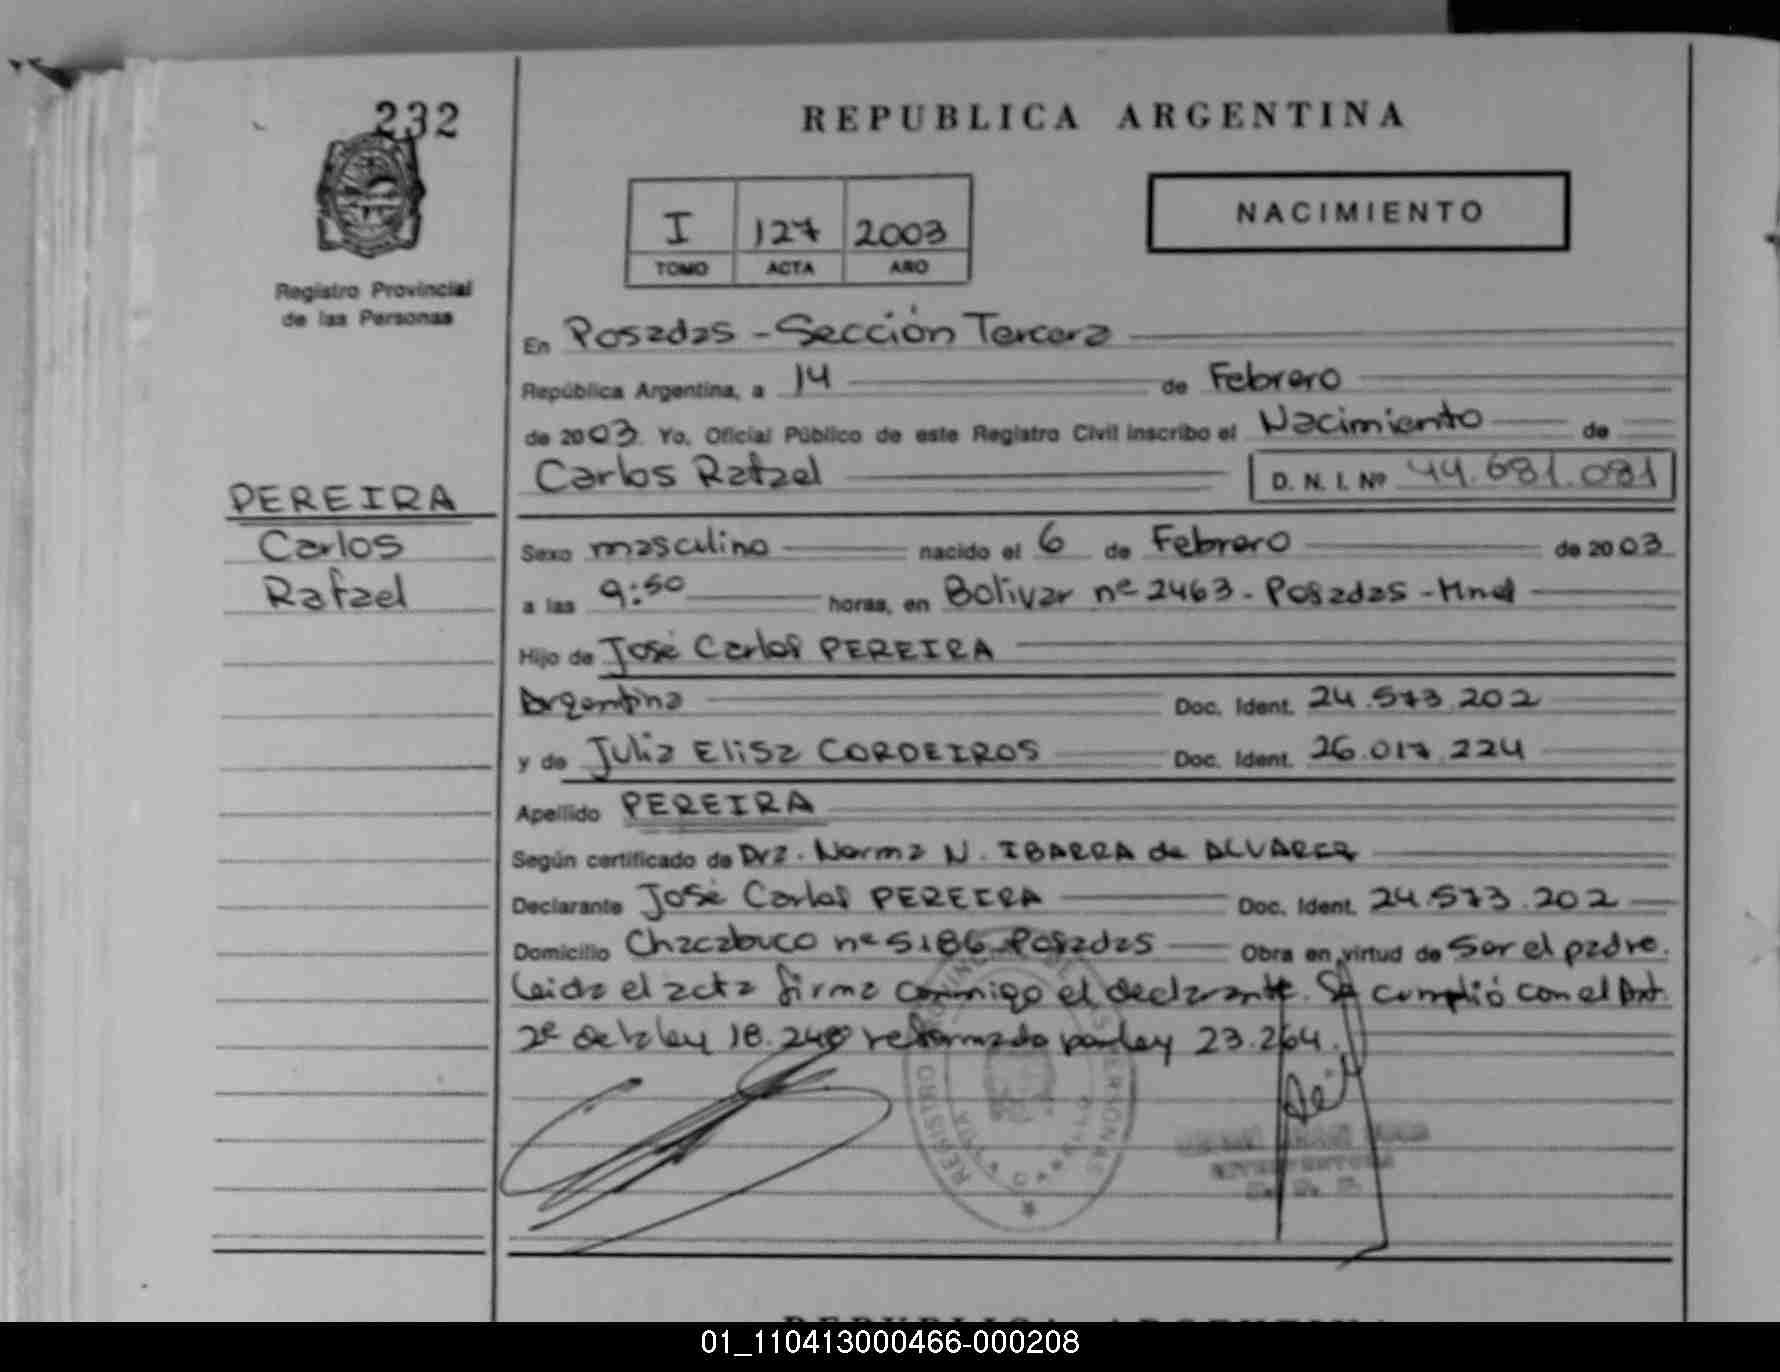 232
REPUBLICA ARGENTINA
I 127 2003
NACIMIENTO
TOMO ACTA AÑO
Registro Provincial
de las Personas
En Posadas - Sección Tercera
República Argentina, a 14 de Febrero
de 2003. Yo, Oficial Público de este Registro Civil inscribo el Nacimiento de
Carlos Rafael D. N. I. Nº 44.681.081
PEREIRA
Carlos
Rafael
Sexo masculino nacido el 6 de Febrero de 2003
a las 9:50 horas, en Bolivar nº 2463 - Posadas - Mnes
Hijo de José Carlos PEREIRA
Argentina Doc. Ident. 24.573.202
y de Julia Elisa CORDEIROS Doc. Ident. 26.017.224
Apellido PEREIRA
Según certificado de Dra. Norma N. IBARRA de ALVAREZ
Declarante José Carlos PEREIRA Doc. Ident. 24.573.202
Domicilio Chacabuco nº 5186 Posadas Obra en virtud de Ser el padre.
Leida el acta firma conmigo el declarante. Se cumplió con el Art.
2º de la ley 18.248 reformado por ley 23.264.
REPUBLICA ARGENTINA
01_110413000466-000208